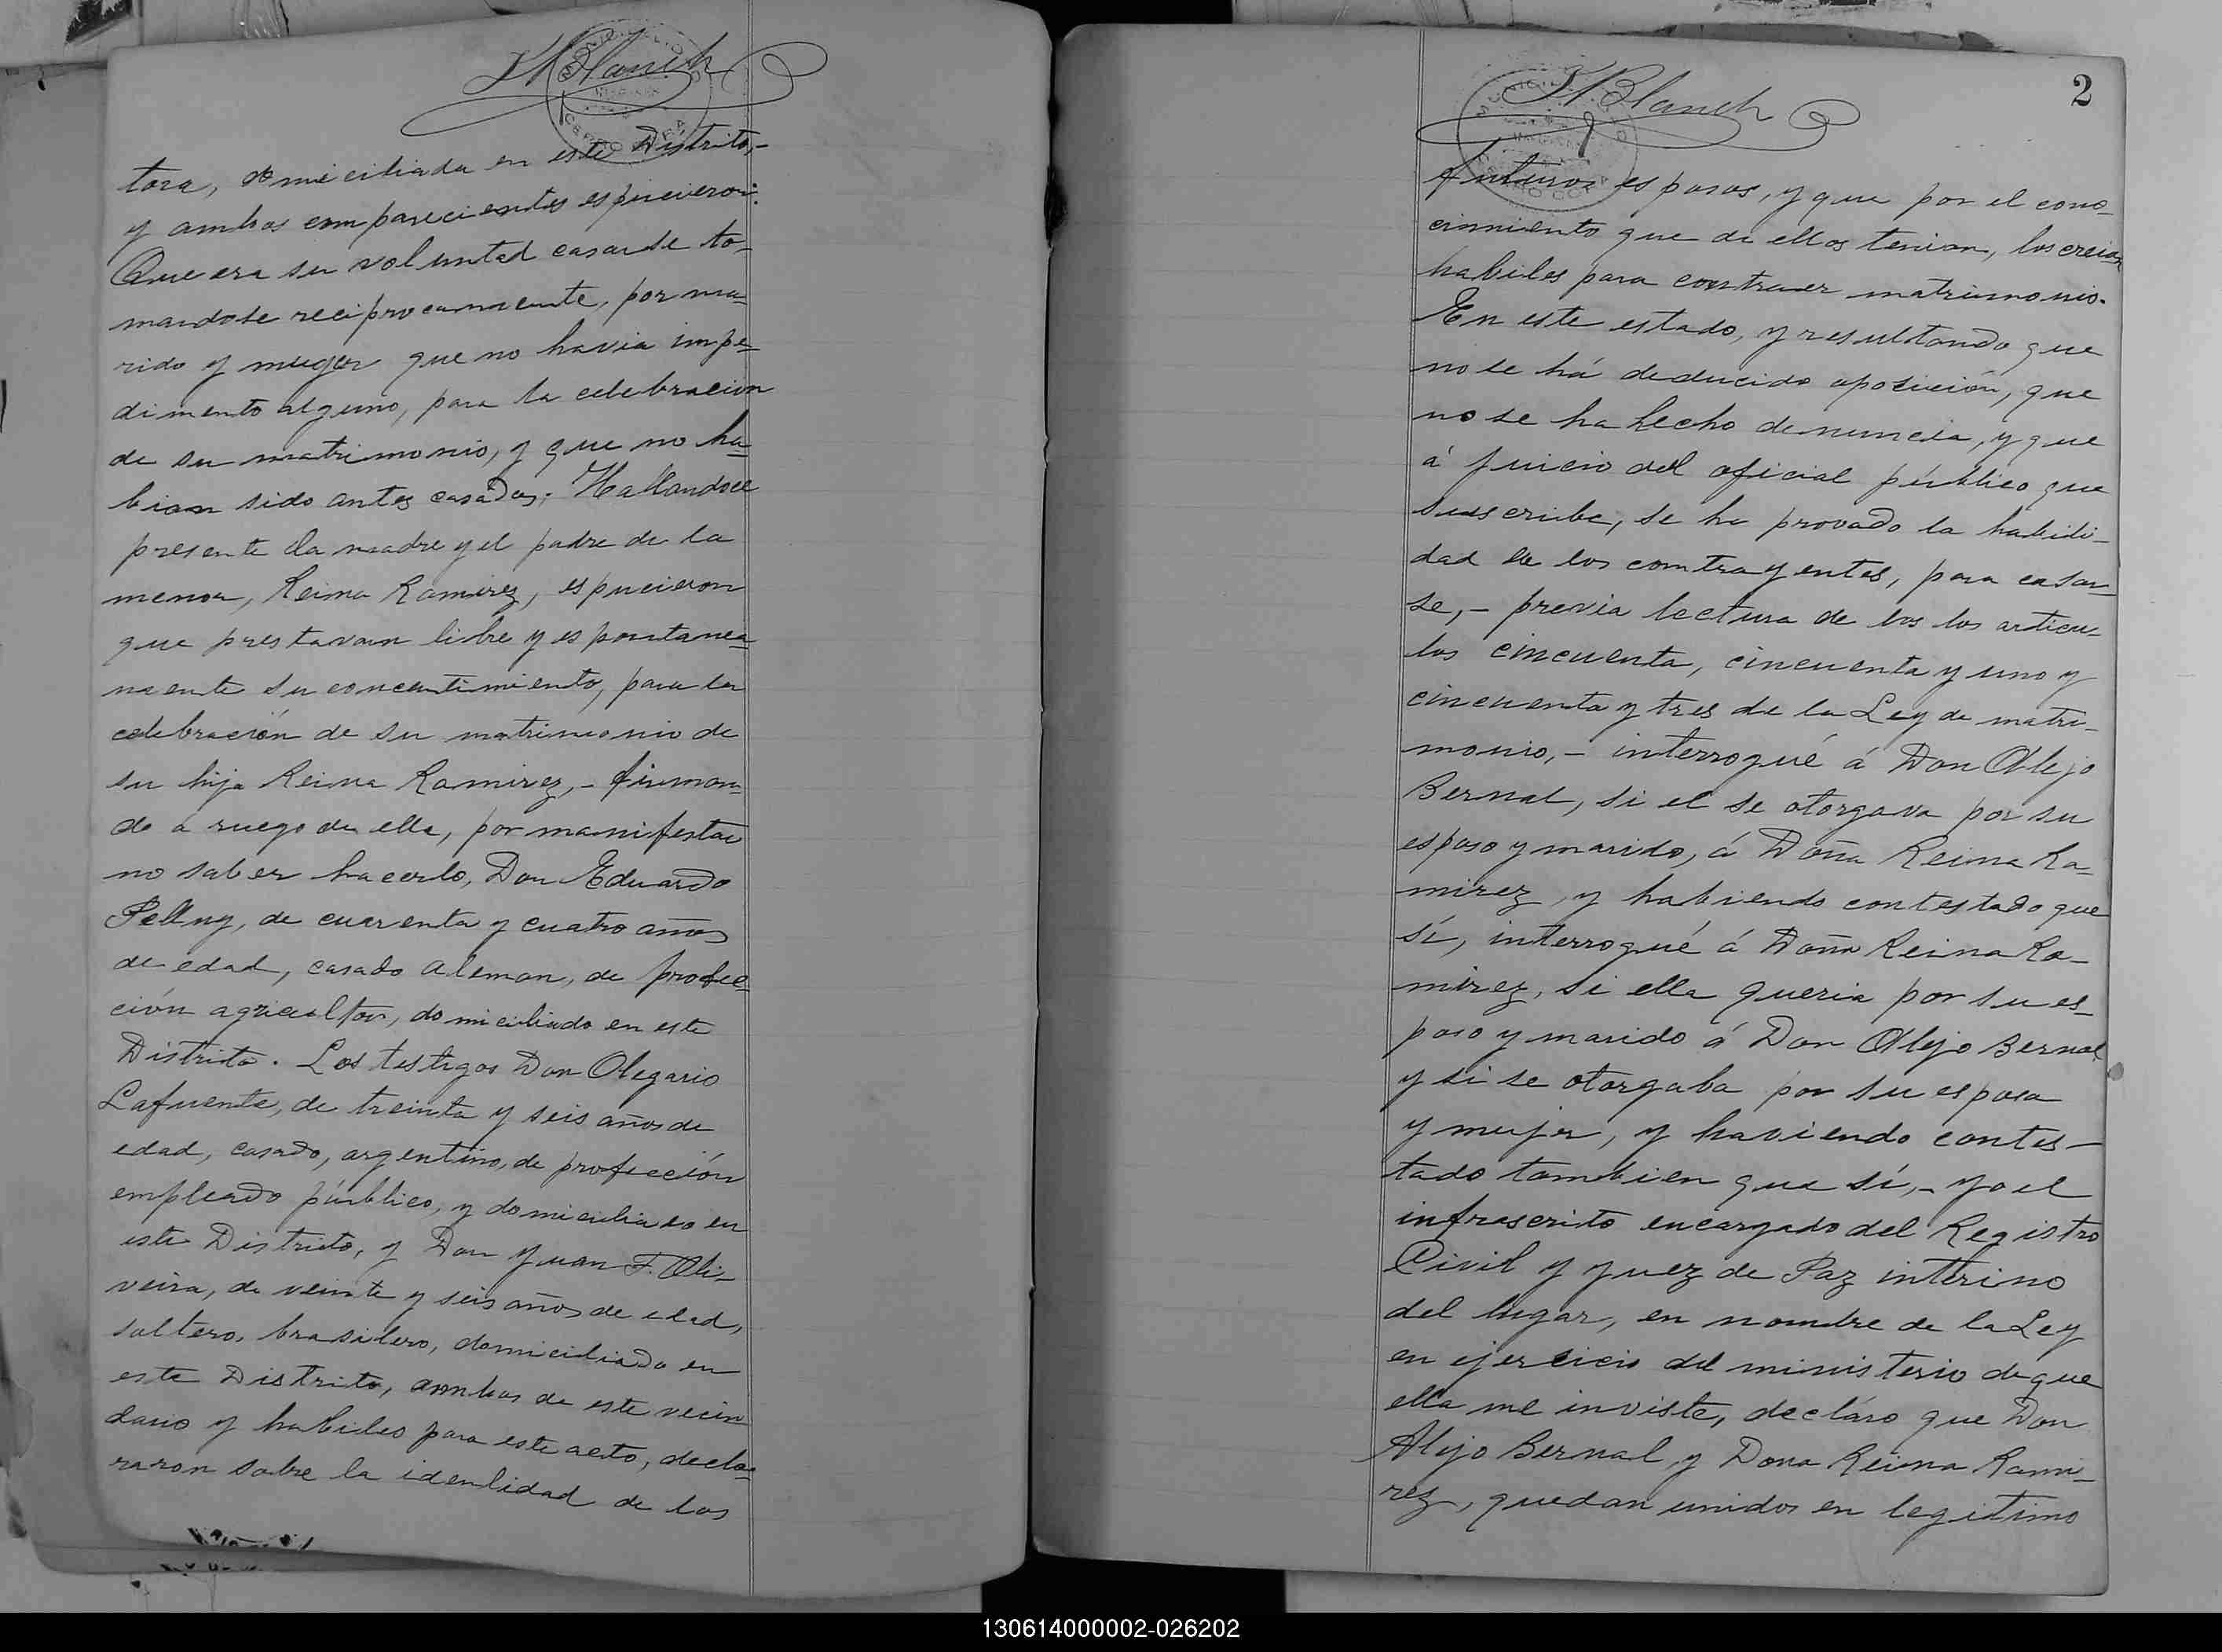 JN Blanch
tora, domiciliada en este Distrito,-
y ambos comparecientes espucieron:
Que era su voluntad casarse to-
mandose reciprocamente, por ma-
rido y muger que no havia impe-
dimento alguno, para la celebracion
de su matrimonio, y que no ha-
bian sido antes casados; Hallandose
presente la madre y el padre de la
menor, Reina Ramirez, espucieron
que prestavan libre y espontanea-
mente su concentimiento, para la
celebración de su matrimonio de
su hija Reina Ramirez,- firman-
do a ruego de ella, por manifestar
no saber hacerlo, Don Eduardo
Pellny, de cuarenta y cuatro años
de edad, casado aleman, de profec-
ción agricultor, domiciliado en este
Distrito. Los testigos Don Olegario
Lafuente, de treinta y seis años de
edad, casado, argentino, de profección
empleado público, y domiciliado en
este Distrito, y Don Yuan F. Oli-
veira, de veinte y seis años de edad,
soltero, brasilero, domiciliado en
este Distrito, ambos de este vecin
dario y habiles para este acto, decla-
raron sobre la identidad de los
JN Blanch
2
futuros esposos, y que por el cono-
cimiento que de ellos tenian, los creian
habiles para contraer matrimonio.
En este estado, y resultando que
no se há deducido oposición, que
no se ha hecho denuncia, y que
á juicio del oficial público que
suscribe, se ha provado la habili-
dad de los contrayentes, para casar-
se,- previa lectura de los los articu-
los cincuenta, cincuenta y uno y
cincuenta y tres de la Ley de matri-
monio,- interrogué á Don Alejo
Bernal, si el se otorgava por su
esposo y marido, á Doña Reina Ra-
mirez, y habiendo contestado que
sí, interrogué á Doña Reina Ra-
mirez, si ella queria por su es-
poso y marido á Don Alejo Bernal
y si se otorgaba por su esposa
y mujer, y haviendo contes-
tado tambien que sí,- yo el
infrascrito encargado del Registro
Civil y Yuez de Paz interino
del lugar, en nombre de la Ley
en ejercicio del ministerio de que
ella me inviste, decláro que Don
Alejo Bernal, y Dona Reina Rami-
rez, quedan unidos en legitimo
130614000002-026202